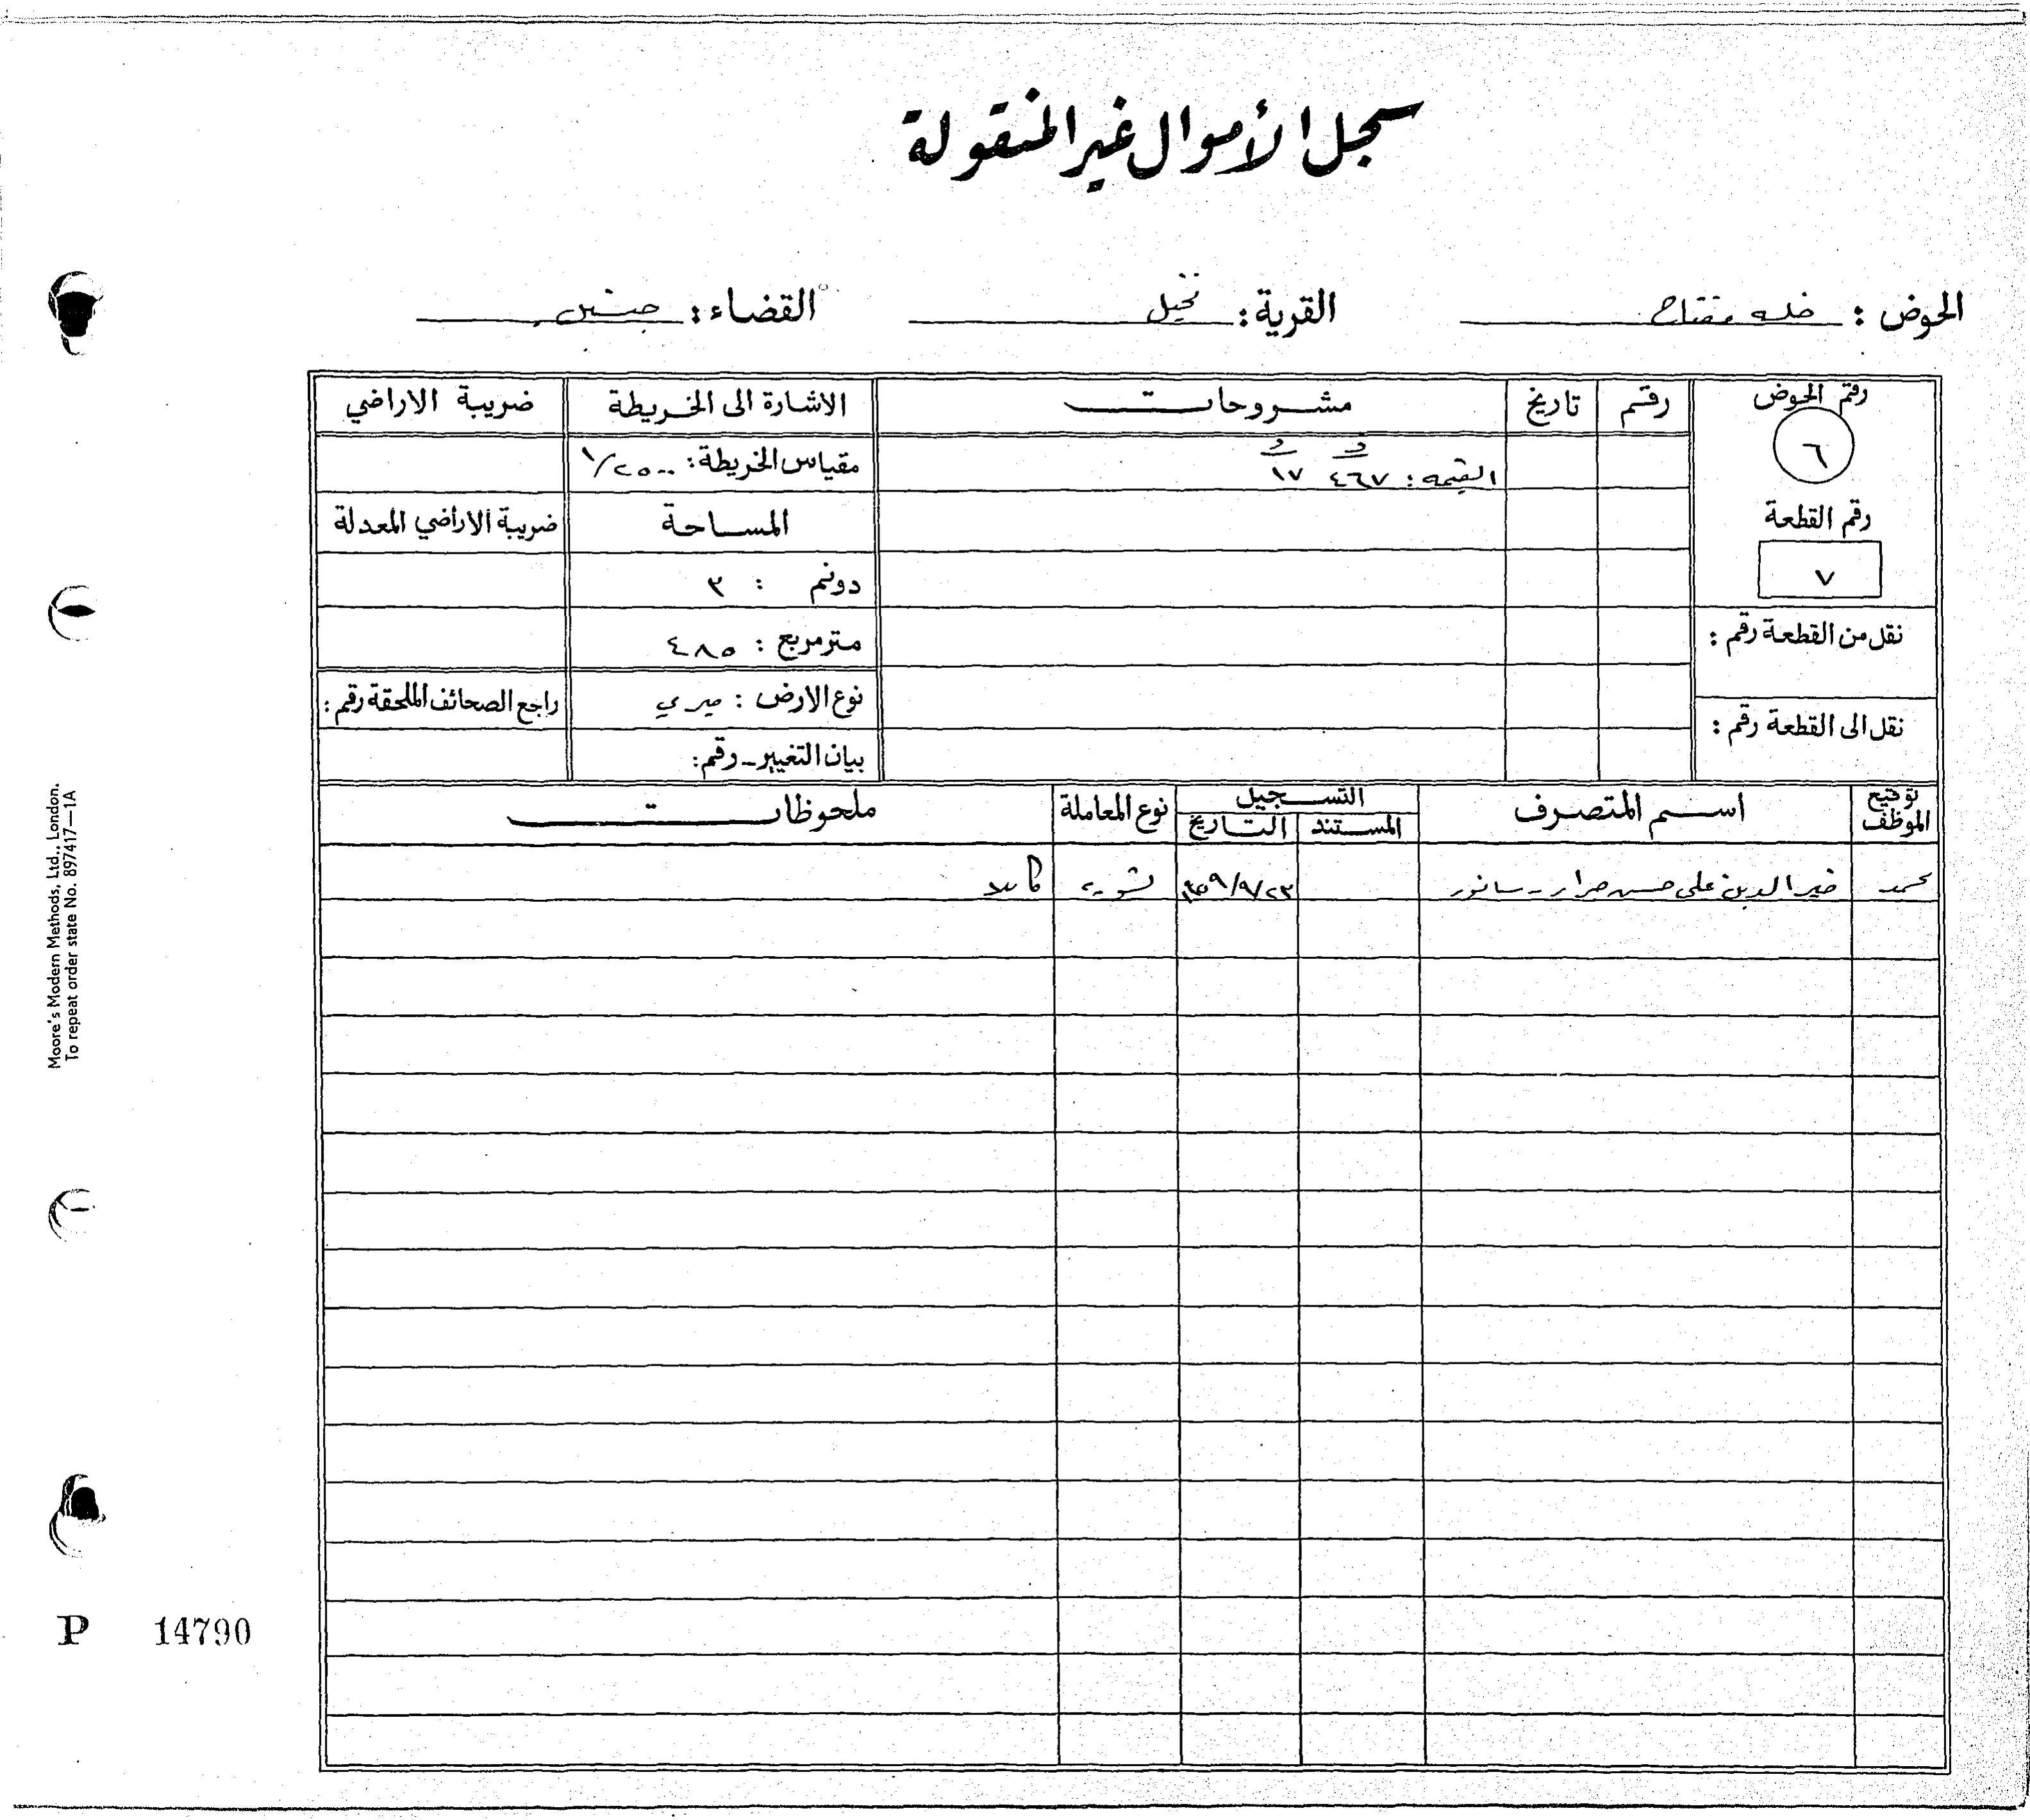 سجل الأموال غير المنقولة
الحوض : خلة مفتاح القرية : نخيل القضاء : جنين
رقم الحوض رقم تاريخ مشروحات الاشارة الى الخريطة ضريبة الاراضي
٦
القيمه : ٤٦٧ د ١٧ د
مقياس الخريطة : ١/٢٥٠٠
رقم القطعة
٧
المساحة ضريبة الاراضي المعدلة
دونم : ٣
نقل من القطعة رقم :
متر مربع : ٤٨٥
نوع الارض : ميري راجع الصحائف الملحقة رقم :
نقل الى القطعة رقم :
بيان التغيير - رقم :
توقيع الموظف اسم المتصرف التسجيل نوع المعاملة ملحوظات
المستند التاريخ
محمد خير الدين علي حسن جرار - سانور ١٩٥٩/٩/٢٣ تسوية كاملا
Moore's Modern Methods, Ltd., London.
To repeat order state No. 897417—1A
P 14790